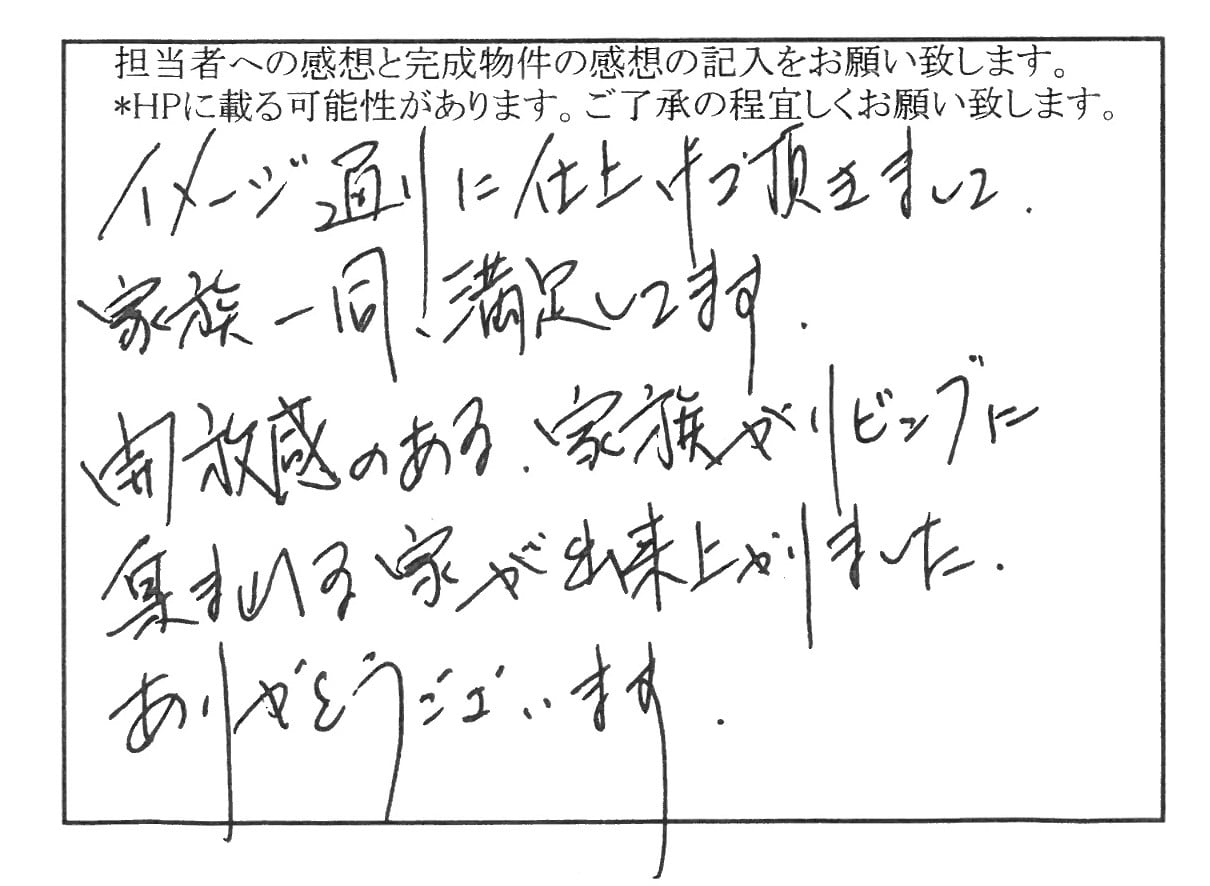 担当者への感想と完成物件の感想の記入をお願い致します。
*HPに載る可能性があります。ご了承の程宜しくお願い致します。
イメージ通りに仕上げて頂きまして.
家族一同、満足してます.
開放感のある.家族がリビングに
集まれる家が出来上がりました.
ありがとうございます.